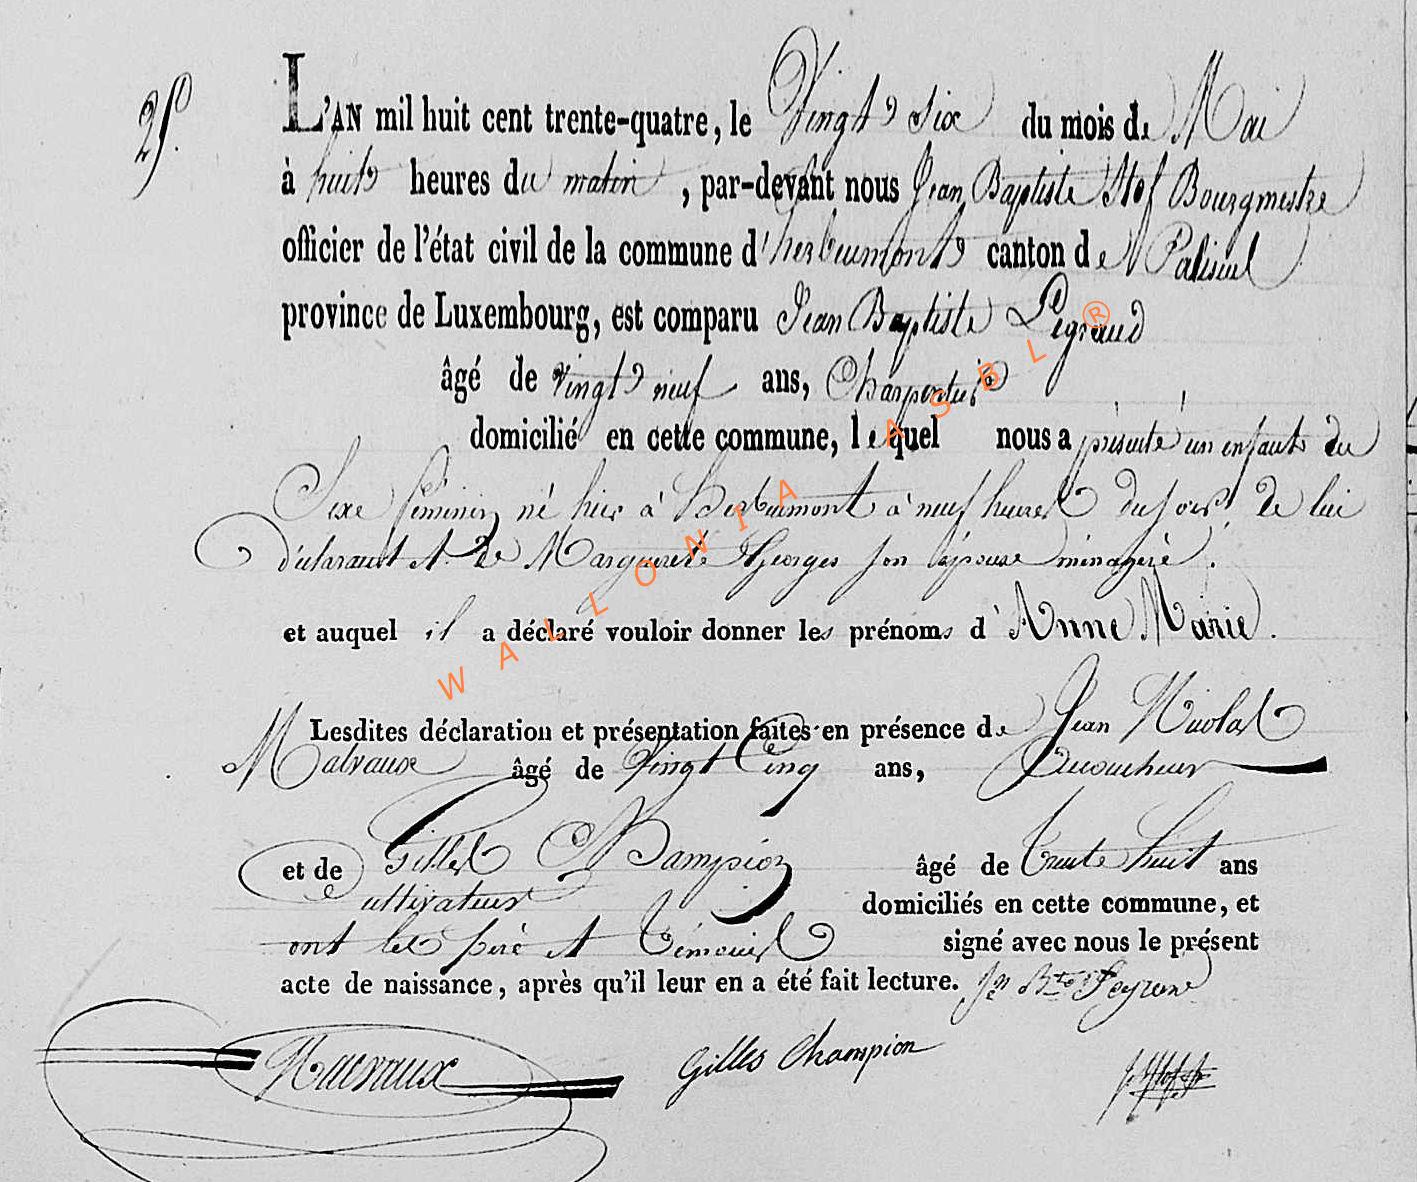 25.
L'AN mil huit cent trente-quatre, le Vingt Six du mois de Mai
à huit heures du matin, par-devant nous Jean Baptiste Stof Bourgmestre
officier de l'état civil de la commune d'herbeumont canton de Paliseul
province de Luxembourg, est comparu Jean Baptiste
âgé de vingt neuf ans, Charpentier
domicilié en cette commune, lequel nous a présenté un enfant du
Sexe féminin né hier à Herbeumont à neuf heures du soir de lui
déclarant et de Marguerite Georges son épouse ménagère.
et auquel il a déclaré vouloir donner les prénoms d'Anne Marie.
Lesdites déclaration et présentation faites en présence de Jean Nicolas
Malvaux âgé de Vingt Cinq ans, Accoucheur
et de Gilles Champion âgé de Trente huit ans
Cultivateur domiciliés en cette commune, et
ont les père et Témoins signé avec nous le présent
acte de naissance, après qu'il leur en a été fait lecture. Jn Bte
Malvaux Gilles Champion
WALLONIA ASBL ®